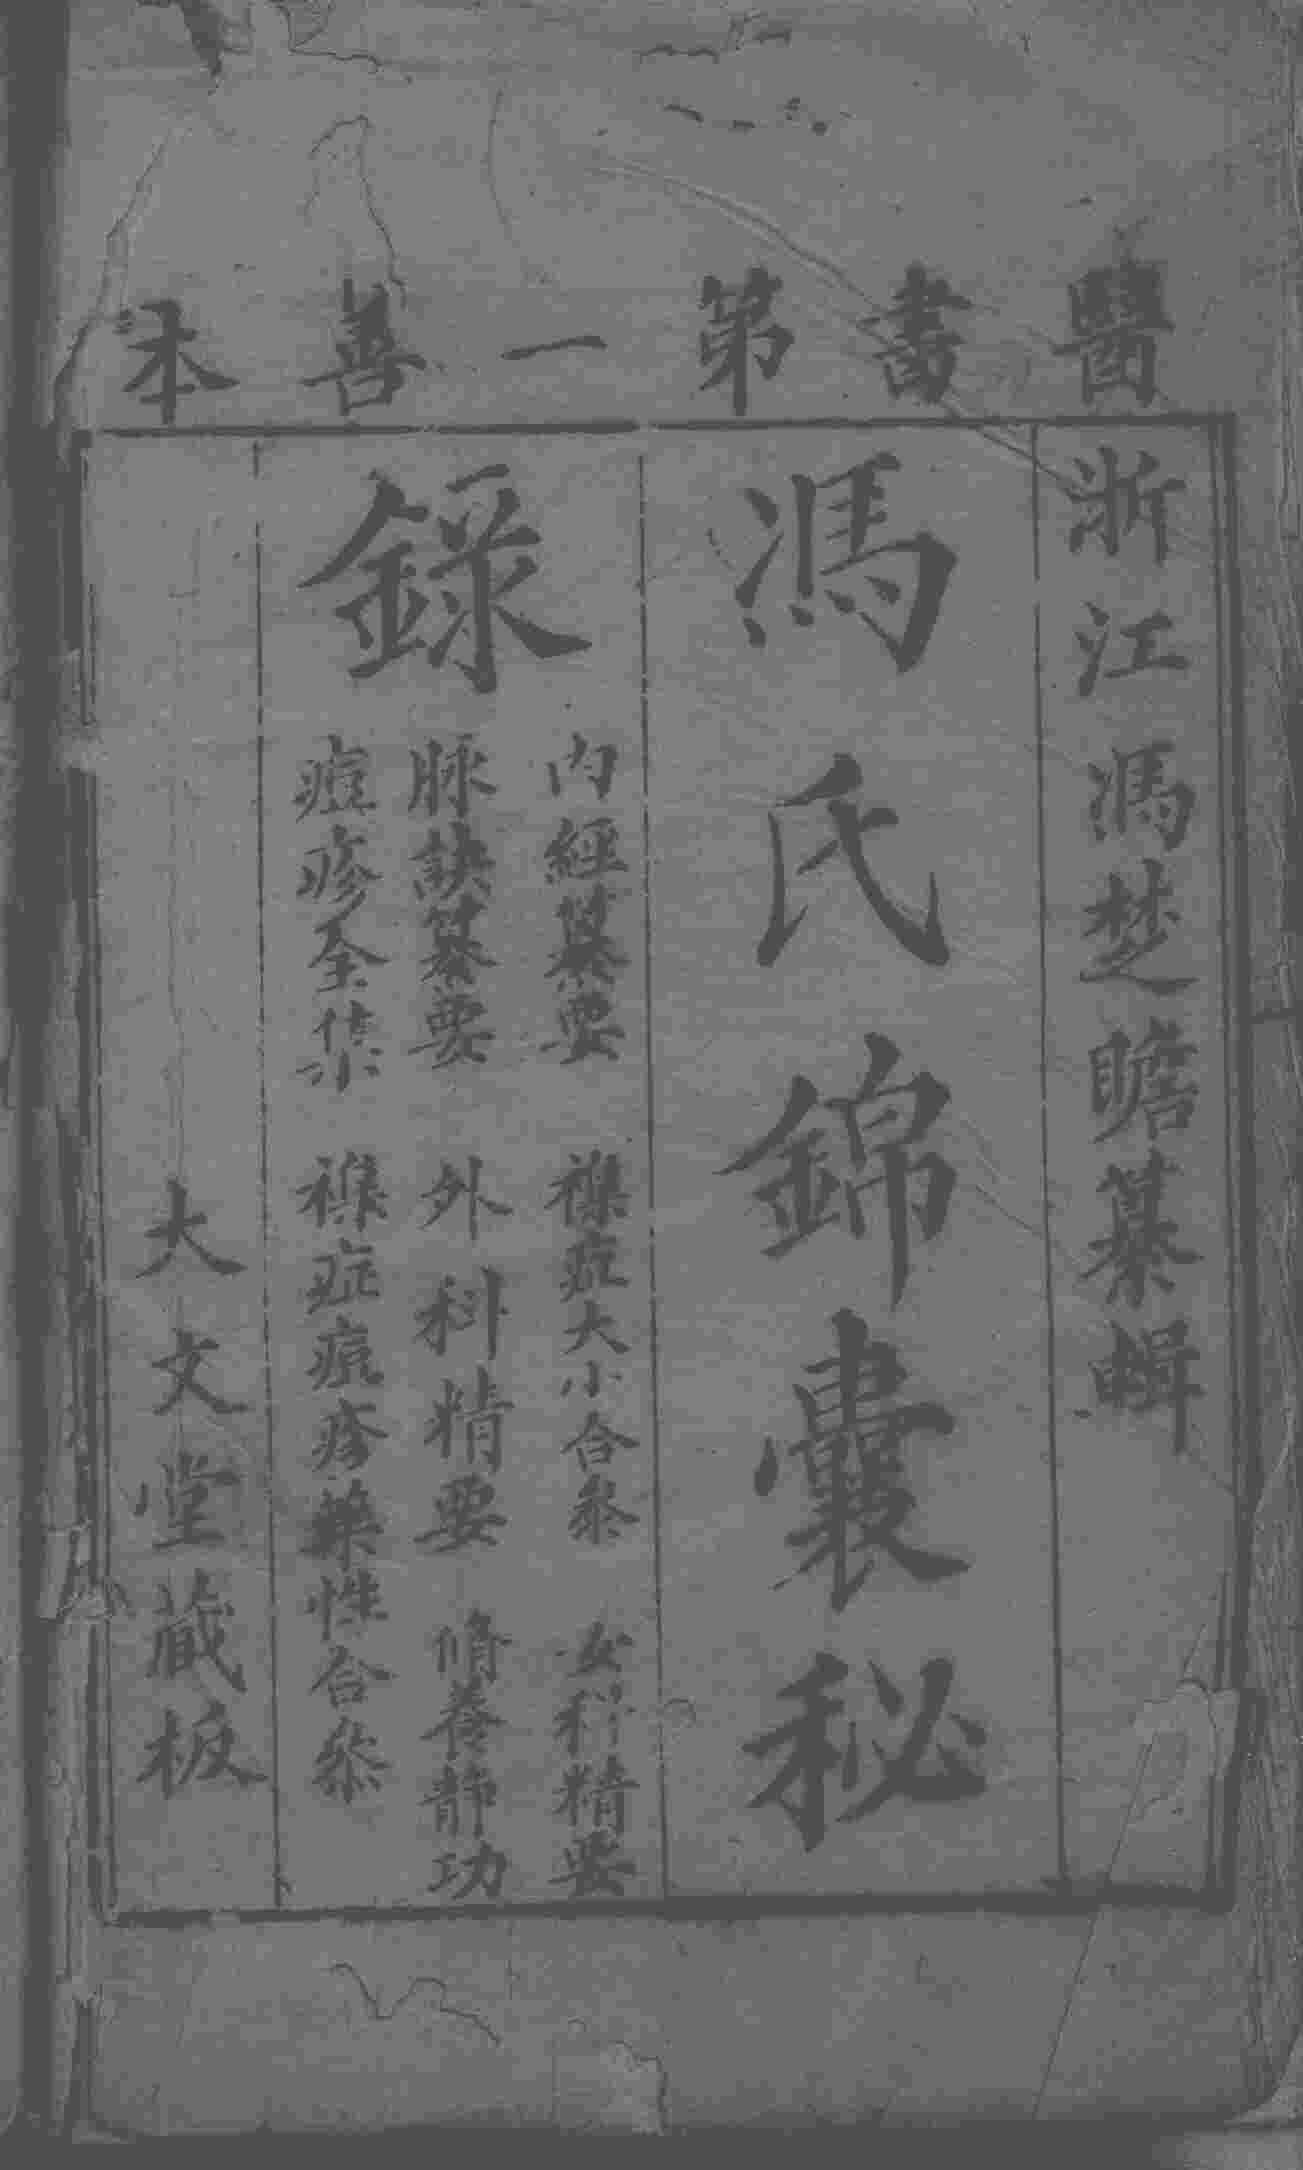 醫書第一善本
浙江馮楚瞻纂輯
馮氏錦囊秘
錄
內經纂要
襍症大小合參
女科精要
脉訣纂要
外科精要
脩養靜功
痘疹全集
襍症痘疹藥性合參
大文堂藏板